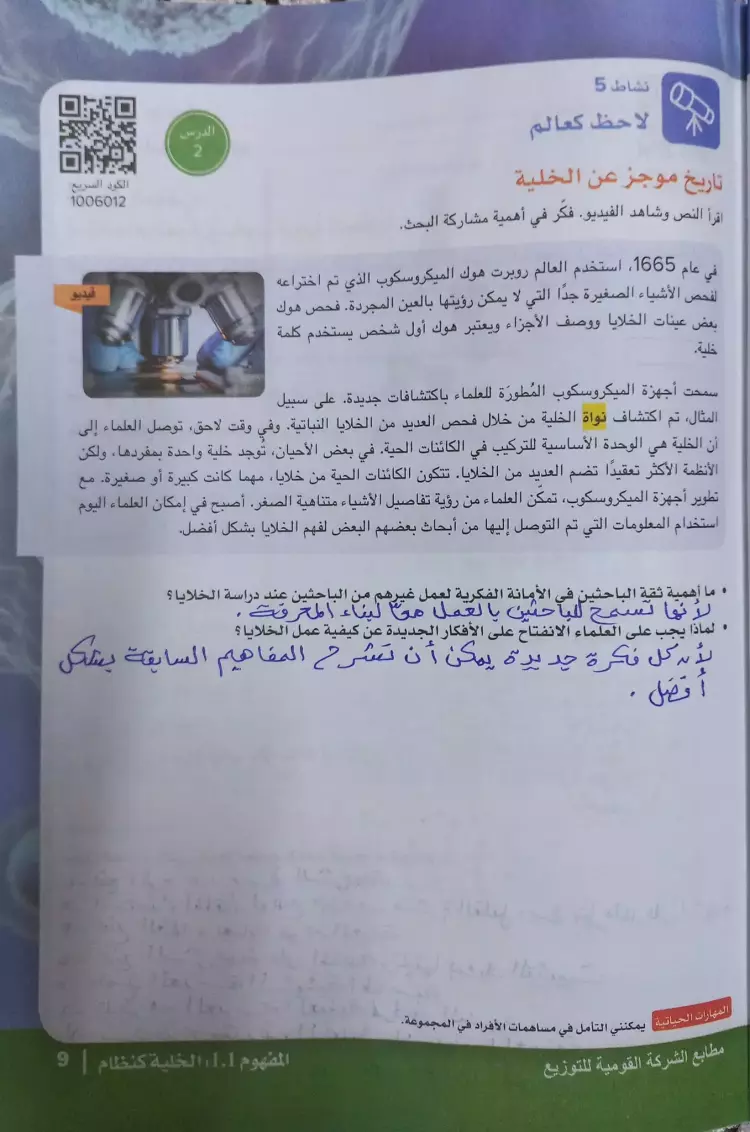 نشاط 5
لاحظ كعالم
الدرس
2
الكود السريع
1006012
تاريخ موجز عن الخلية
اقرأ النص وشاهد الفيديو. فكّر في أهمية مشاركة البحث.
فيديو
في عام 1665، استخدم العالم روبرت هوك الميكروسكوب الذي تم اختراعه
لفحص الأشياء الصغيرة جدًا التي لا يمكن رؤيتها بالعين المجردة. فحص هوك
بعض عينات الخلايا ووصف الأجزاء ويعتبر هوك أول شخص يستخدم كلمة
خلية.
سمحت أجهزة الميكروسكوب المُطورَة للعلماء باكتشافات جديدة. على سبيل
المثال، تم اكتشاف نواة الخلية من خلال فحص العديد من الخلايا النباتية. وفي وقت لاحق، توصل العلماء إلى
أن الخلية هي الوحدة الأساسية للتركيب في الكائنات الحية. في بعض الأحيان، تُوجد خلية واحدة بمفردها، ولكن
الأنظمة الأكثر تعقيدًا تضم العديد من الخلايا. تتكون الكائنات الحية من خلايا، مهما كانت كبيرة أو صغيرة. مع
تطوير أجهزة الميكروسكوب، تمكّن العلماء من رؤية تفاصيل الأشياء متناهية الصغر. أصبح في إمكان العلماء اليوم
استخدام المعلومات التي تم التوصل إليها من أبحاث بعضهم البعض لفهم الخلايا بشكل أفضل.
• ما أهمية ثقة الباحثين في الأمانة الفكرية لعمل غيرهم من الباحثين عند دراسة الخلايا؟
لأنها تسمح للباحثين بالعمل معًا لبناء المعرفة.
• لماذا يجب على العلماء الانفتاح على الأفكار الجديدة عن كيفية عمل الخلايا؟
لأن كل فكرة جديدة يمكن أن تشرح المفاهيم السابقة بشكل
أفضل.
المهارات الحياتية يمكنني التأمل في مساهمات الأفراد في المجموعة.
مطابع الشركة القومية للتوزيع
المفهوم 1.1: الخلية كنظام | 9